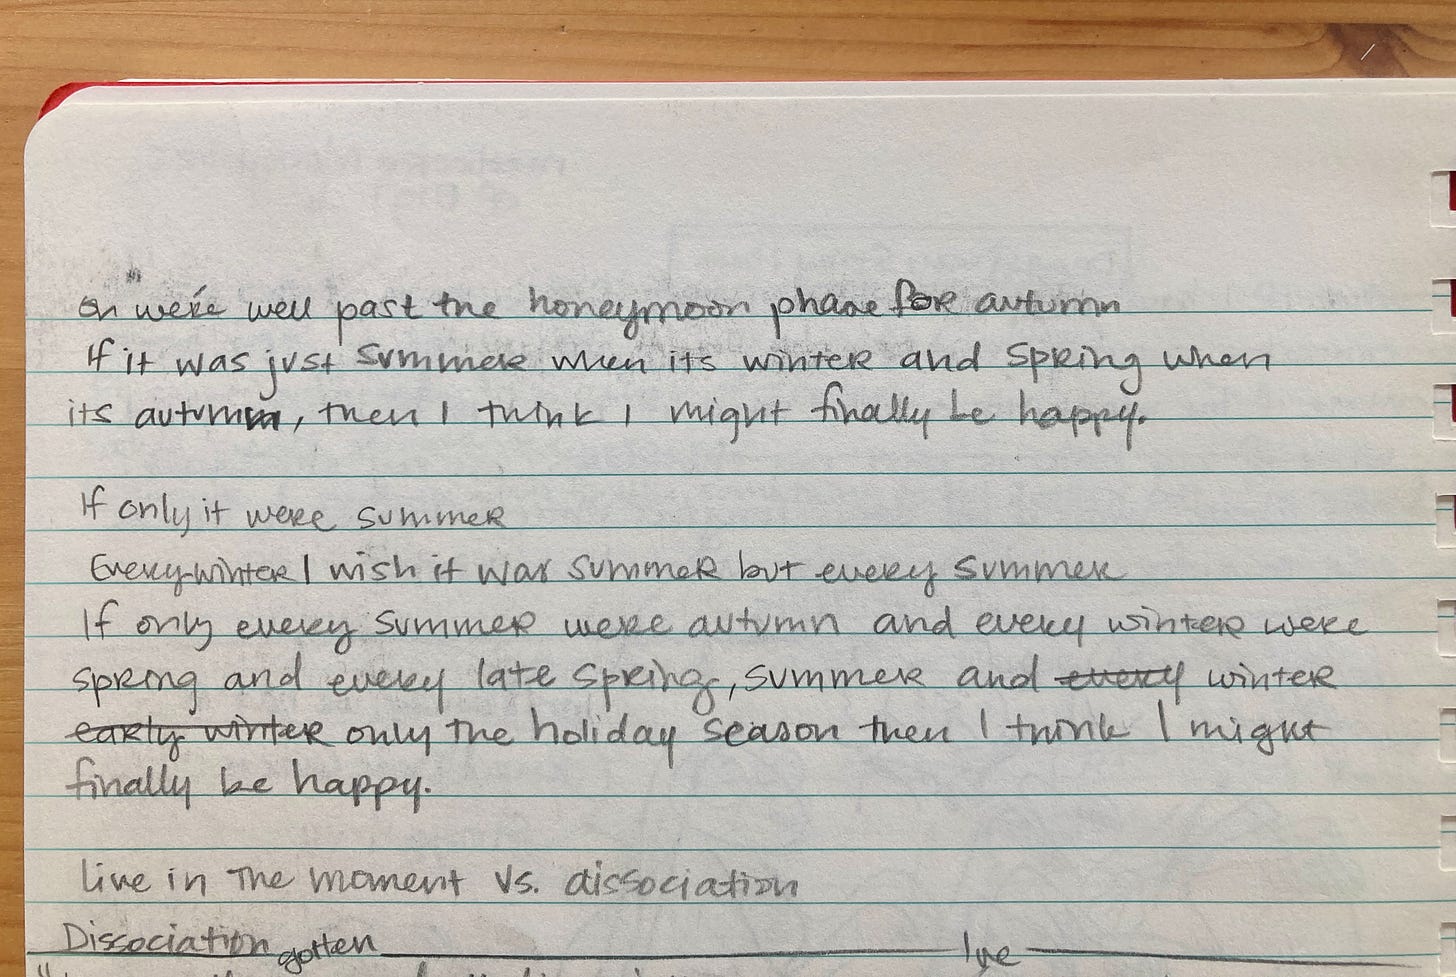 we're well past the honeymoon phase for autumn
If it was just summer when its winter and spring when
its autumn, then I think I might finally be happy.
If only it were summer
Every winter I wish it was summer but every summer
If only every summer were autumn and every winter were
spring and every late spring, summer and every winter
early winter only the holiday season then I think I might
finally be happy.
live in the moment vs. dissociation
Dissociation gotten I've